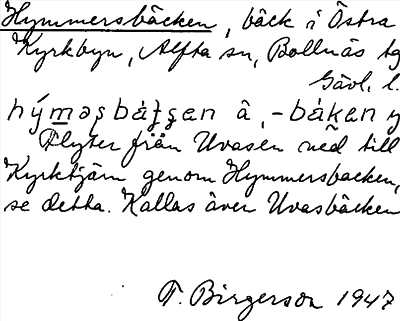 Hymmersbäcken, bäck i Östra
Kyrkbyn, Alfta sn, Bollnäs tg
Gävl. l.
hýməʂbát̬ʂen â, -báken y
Flyter från Uvasen ned till
Kyrktjärn genom Hymmersbacken,
se detta. Kallas även Uvasbäcken
F. Birgerson 1947